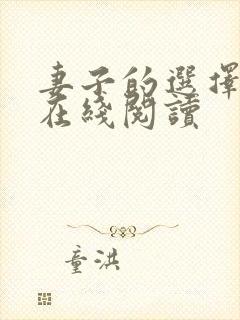 妻子的選擇
在綫閱讀
童洪